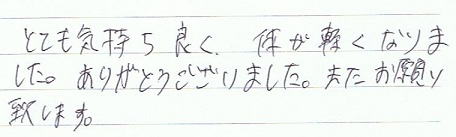 とても気持ち良く、体が軽くなりま
した。ありがとうございました。またお願い
致します。